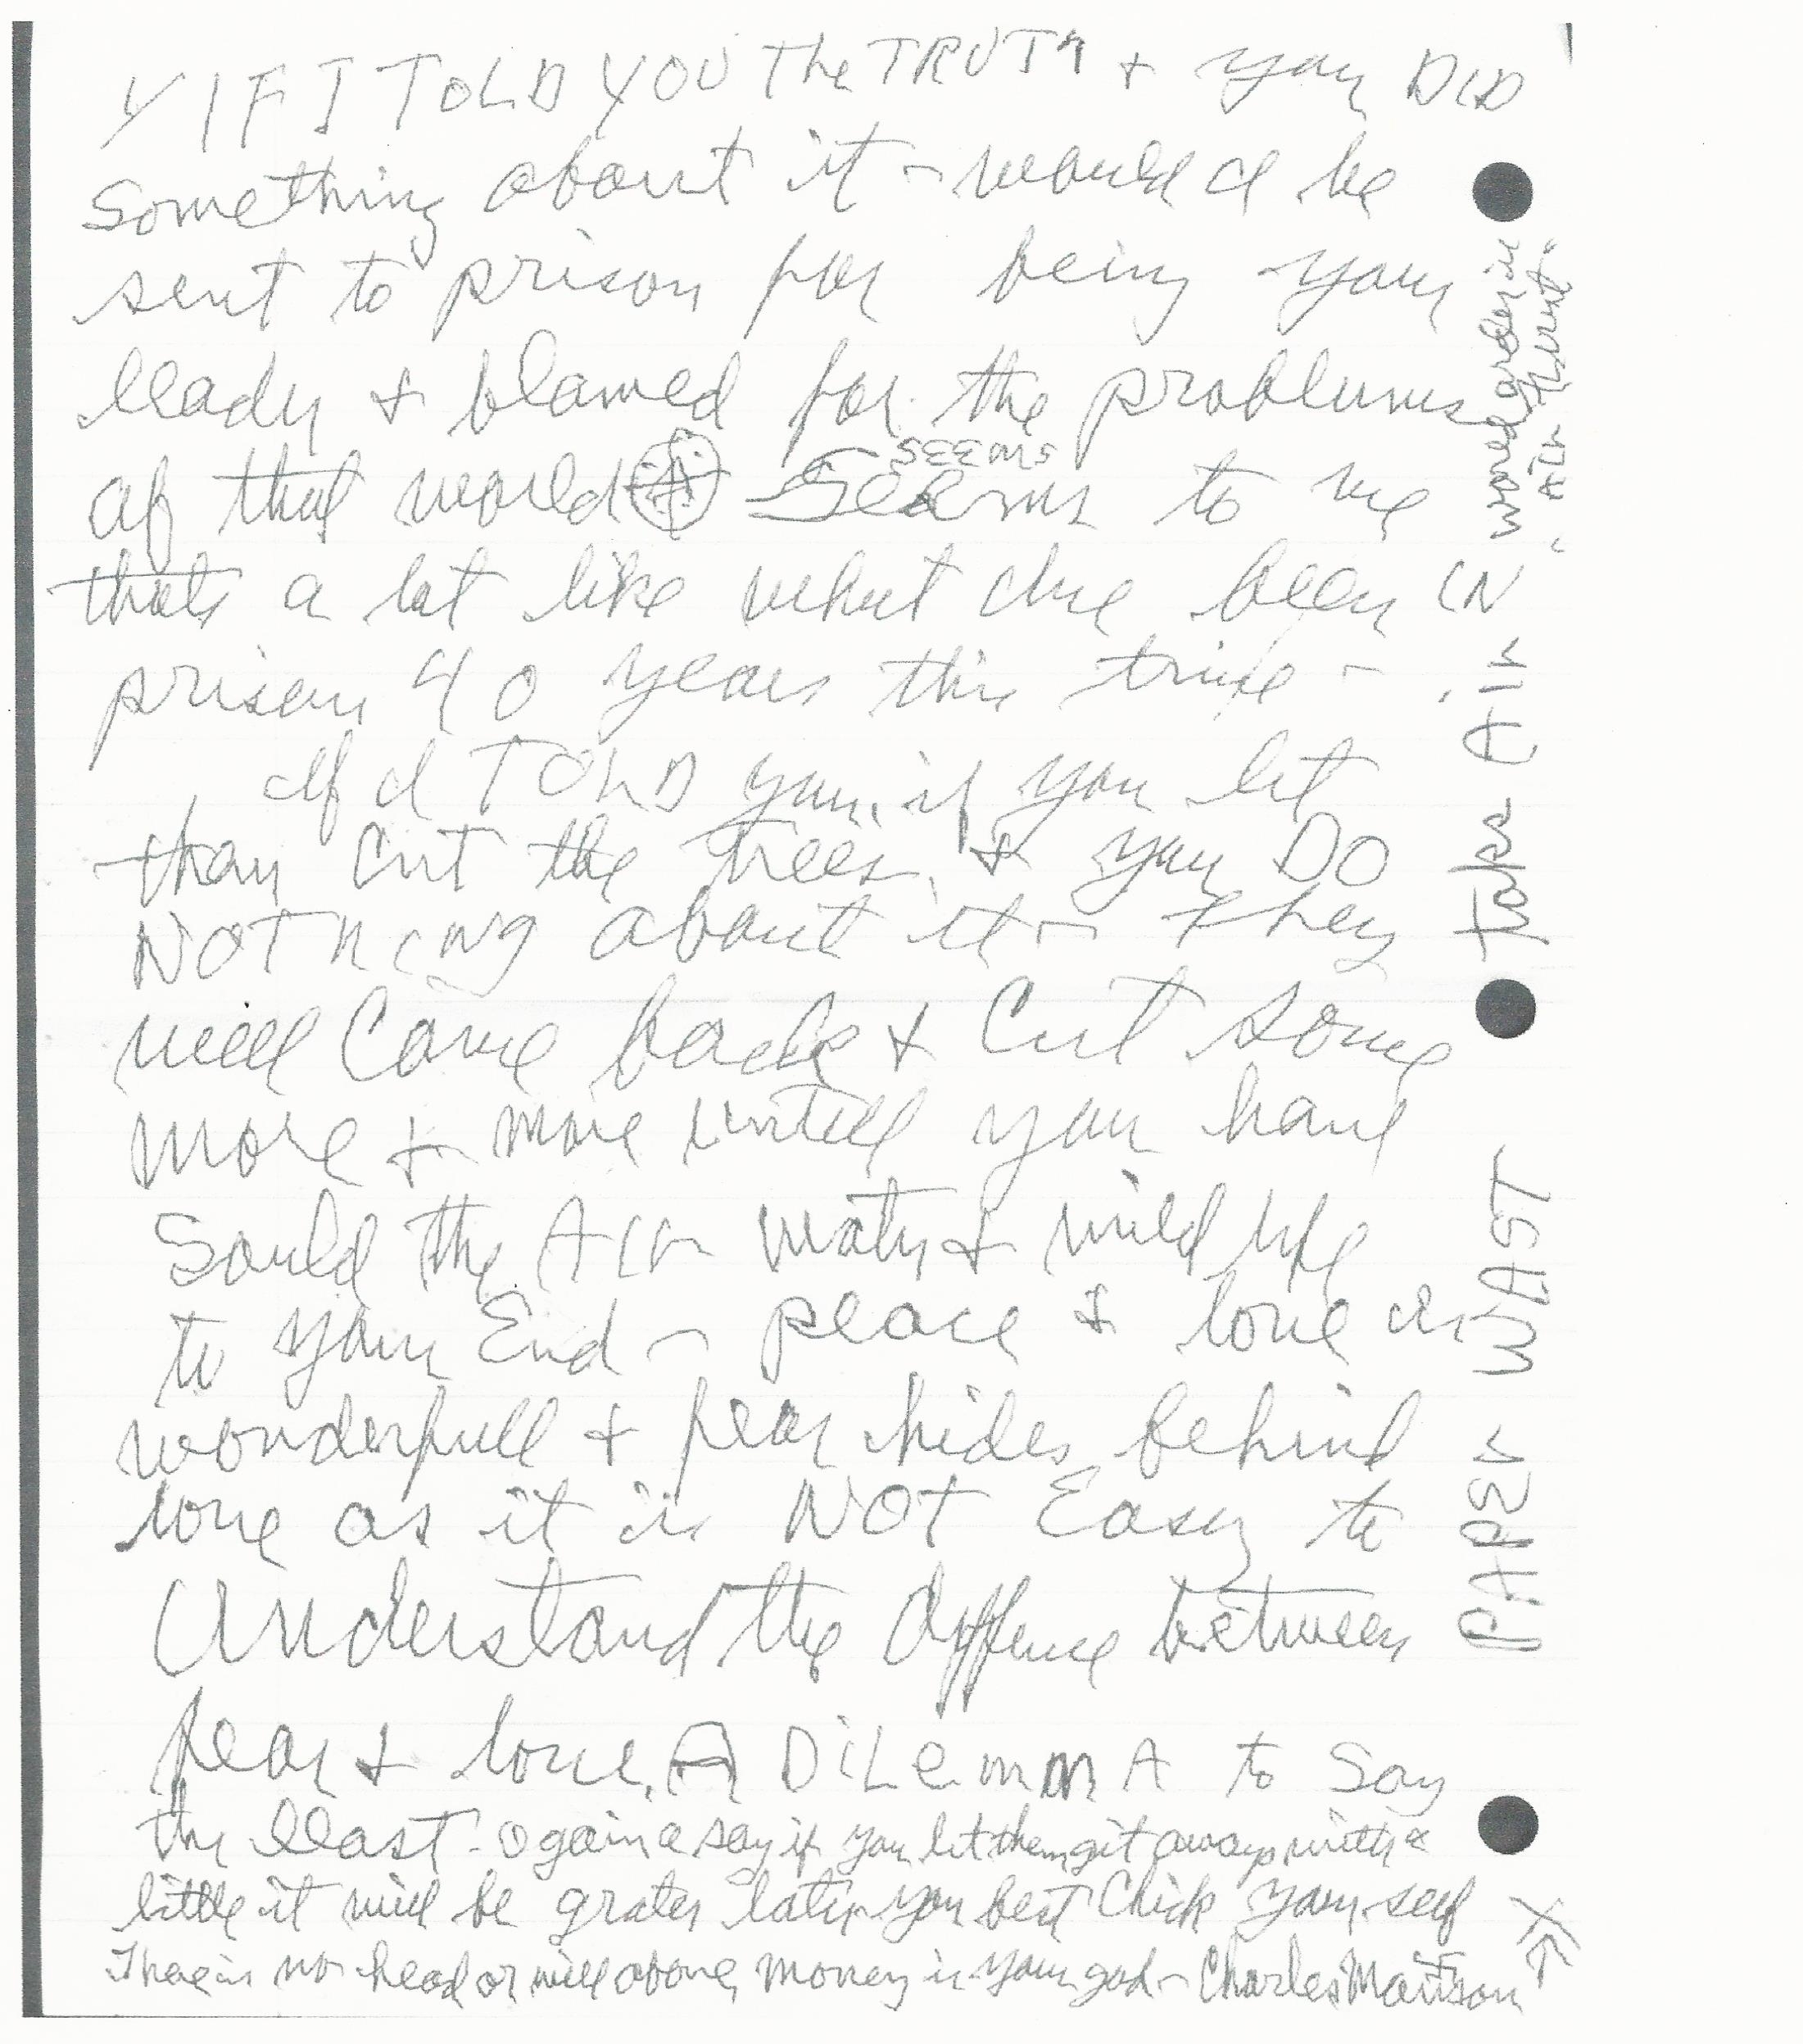 Y IF I TOLD YOU The TRUTh + you DID
Something about it - would I be
sent to prison for being your
leader + blamed for the problems
of that world Seems to me
thats a lot like what Ive been IN
prison 40 years this time -
If I TOLD you, if you let
them Cut the trees, + you DO
NOThiNg about it - they
will Come back + Cut some
more + more untill you have
Sould the AIr water + wild life
to your End - peace + love is
wonderfull + fear hides behind
love as it is NOT Easy to
Understand the Diffence between
fear + love. A DiLemmA to Say
the least - again I say if you let them git away with a
little it will be grater later you best Chick your self
There is no head or will above, money is your god - Charles Manson
PAPEr WAST Take AIr
world order is
"AIr